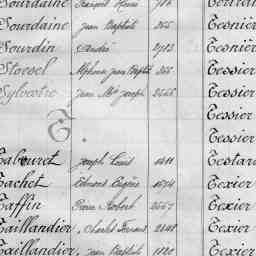 Sourdaine François Henri
Sourdaine Jean Baptiste 355 Tesnier
Sourdin André Tesnière
Stoesel Alphonse Jean Baptiste 355 Tessier
Sylvestre Jean Mie Joseph Tessier
Tessier
T. Tessier
Tabouret Joseph Louis Testard
Tachet Edmond Eugène Texier
Taffin Pierre Robert 2567 Texier
Taillandier Charles Fernand Texier
Taillandier Jean Baptiste 1820 Texier